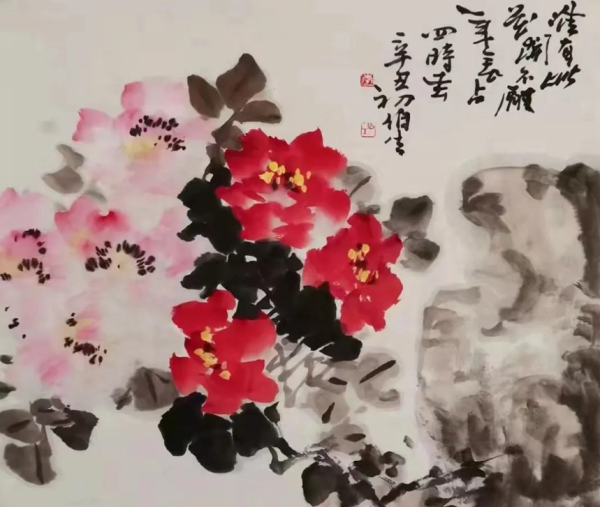 惟有此
花開不厭
一年長占
四時春
辛丑